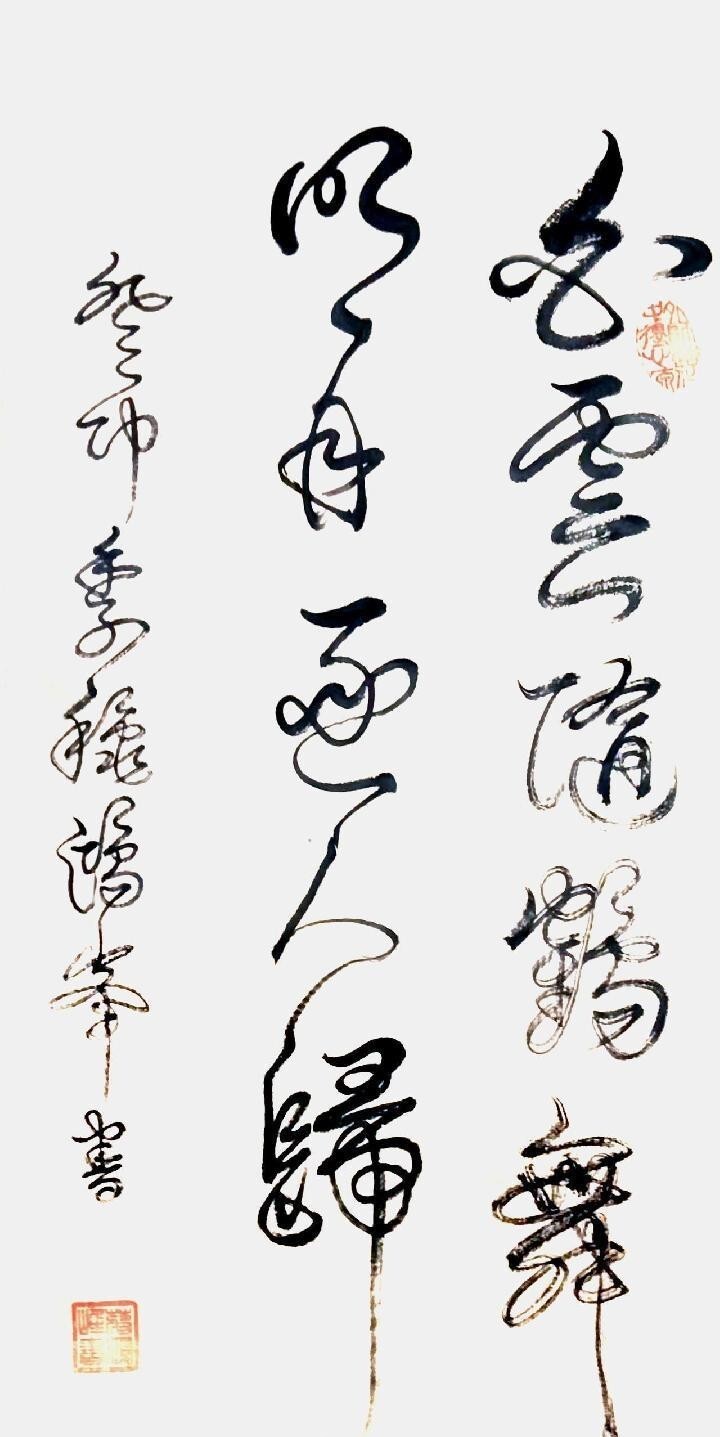 白雲隨鶴舞
明月逐人歸
癸卯季穐鴻峯書